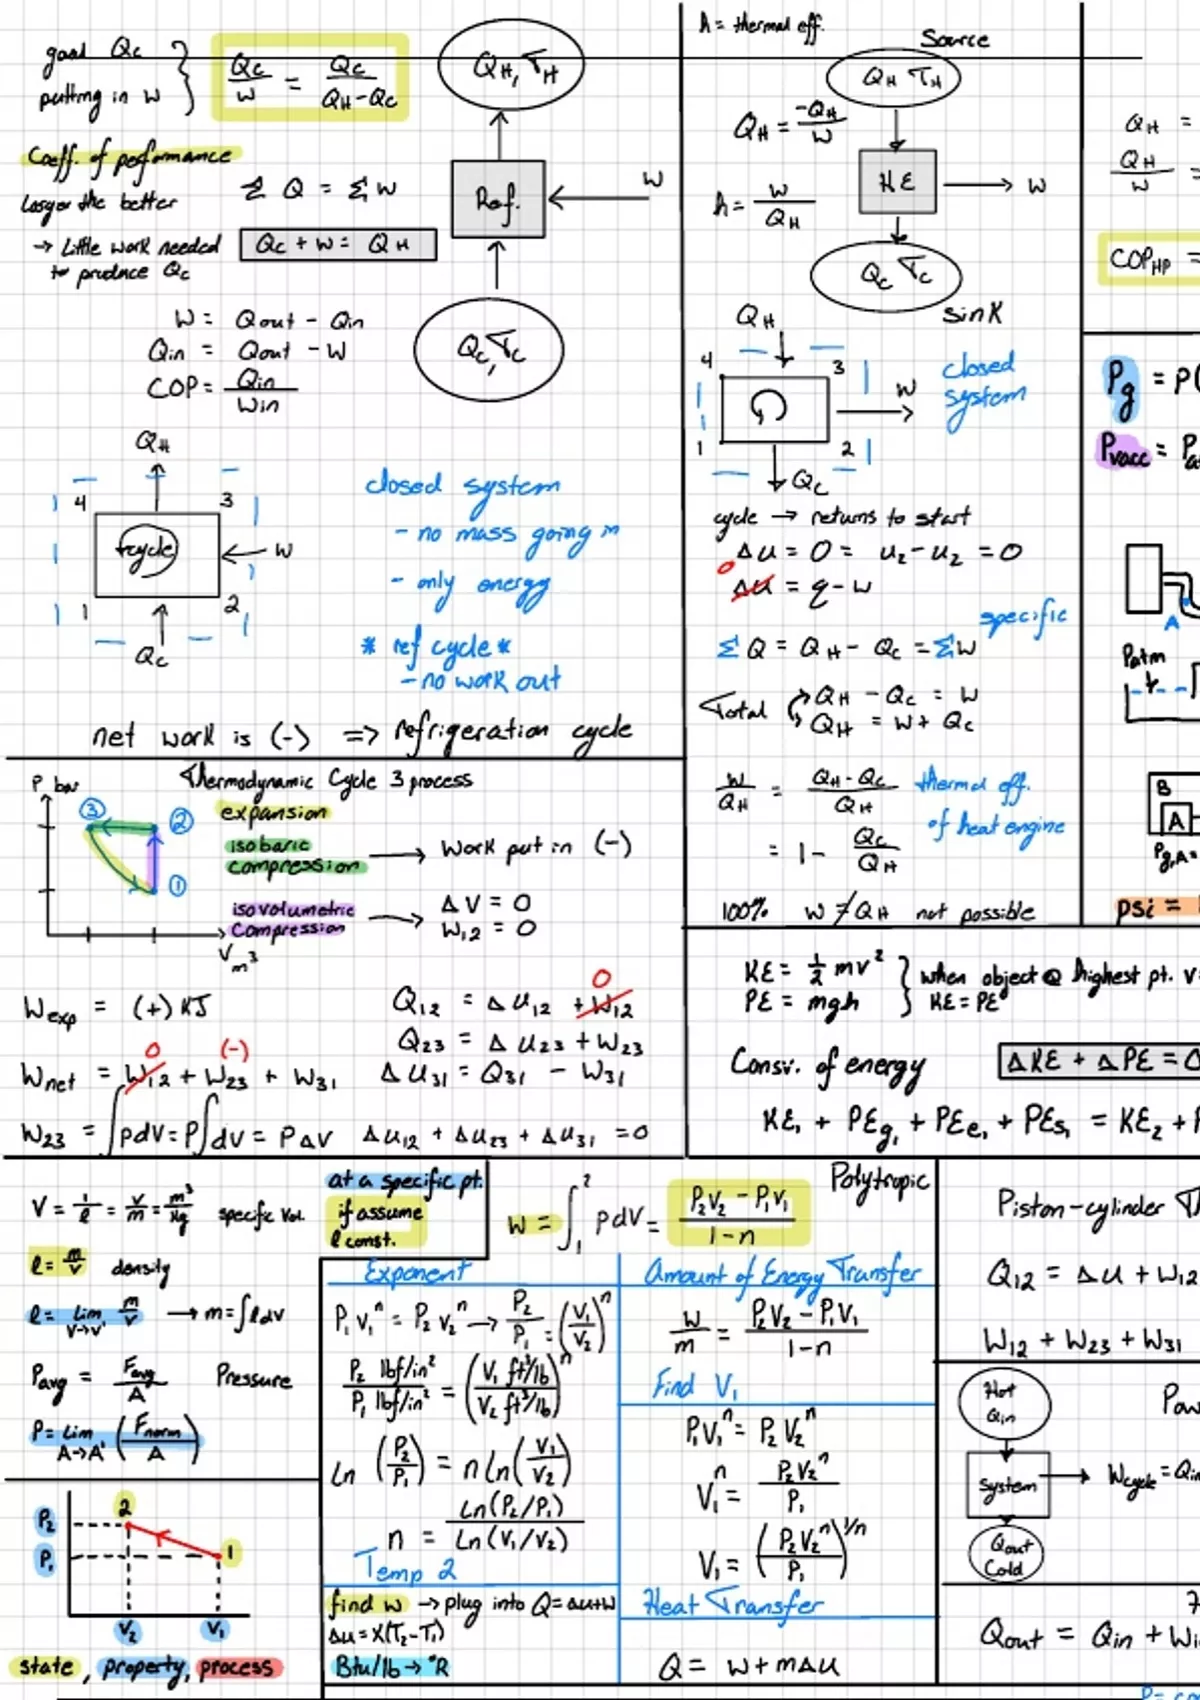 good Qc
putting in W
Qc/W = Qc/(QH-Qc)
QH, TH
Coeff. of performance
Larger the better
→ Little work needed
to produce Qc
Σ Q = Σ W
Qc + W = QH
Ref.
W
W = Qout - Qin
Qin = Qout - W
COP = Qin/Win
Qc, Tc
QH
4 3
cycle
W
1 2
Qc
closed system
- no mass going in
- only energy
* ref cycle *
- no work out
net work is (-) => refrigeration cycle
η = thermal eff.
Source
QH TH
QH = -QH/W
HE
W
η = W/QH
Qc Tc
sink
QH
4 3
W
1 2
Qc
closed
system
cycle → returns to start
Δu = 0 = u2 - u2 = 0
0
Δu = q - w
specific
ΣQ = QH - Qc = ΣW
Total
QH - Qc = W
QH = W + Qc
W/QH = (QH-Qc)/QH
thermal eff.
of heat engine
= 1 - Qc/QH
100% W ≠ QH not possible
QH =
QH/W =
COPHP =
Pg = P(
Pvacc = Pa
A
Patm
B
A
Pg,A =
psi =
P bar
Thermodynamic Cycle 3 process
3 2
1
V m³
expansion
isobaric
compression → Work put in (-)
isovolumetric
compression → ΔV = 0
W12 = 0
Wexp = (+) KJ
0
Q12 = Δu12 + W12
Q23 = Δu23 + W23
0 (-)
Wnet = W12 + W23 + W31
Δu31 = Q31 - W31
W23 = ∫PdV = P∫dV = PΔV
Δu12 + Δu23 + Δu31 = 0
KE = 1/2 mv²
PE = mgh
when object @ highest pt. v=
KE = PE
Consv. of energy
ΔKE + ΔPE = 0
KE1 + PEg1 + PEe1 + PEs1 = KE2 + P
V = 1/ρ = v/m = m³/kg specific vol.
ρ = m/v density
ρ = Lim V→V' m/v → m = ∫ρdv
Pavg = Favg/A Pressure
P = Lim A→A' (Fnorm/A)
at a specific pt.
if assume
ρ const.
W = ∫₁² PdV = (P2V2 - P1V1)/(1-n)
Polytropic
Exponent
P1V1ⁿ = P2V2ⁿ → P2/P1 = (V1/V2)ⁿ
P2 lbf/in² / P1 lbf/in² = (V1 ft³/lb / V2 ft³/lb)ⁿ
Ln (P2/P1) = n Ln(V1/V2)
n = Ln(P2/P1)/Ln(V1/V2)
Temp 2
find W → plug into Q = Δu+W
Δu = X(T2-T1)
Btu/lb → °R
Amount of Energy Transfer
W/m = (P2V2 - P1V1)/(1-n)
Find V1
P1V1ⁿ = P2V2ⁿ
V1ⁿ = P2V2ⁿ/P1
V1 = (P2V2ⁿ/P1)^1/n
Heat Transfer
Q = W + mΔu
Piston-cylinder
Q12 = Δu + W12
W12 + W23 + W31
Hot
Qin
System
Qout
Cold
Pow
Wcycle = Qin
Qout = Qin + Wi
P2
P1
2
1
V2 V1
state, property, process